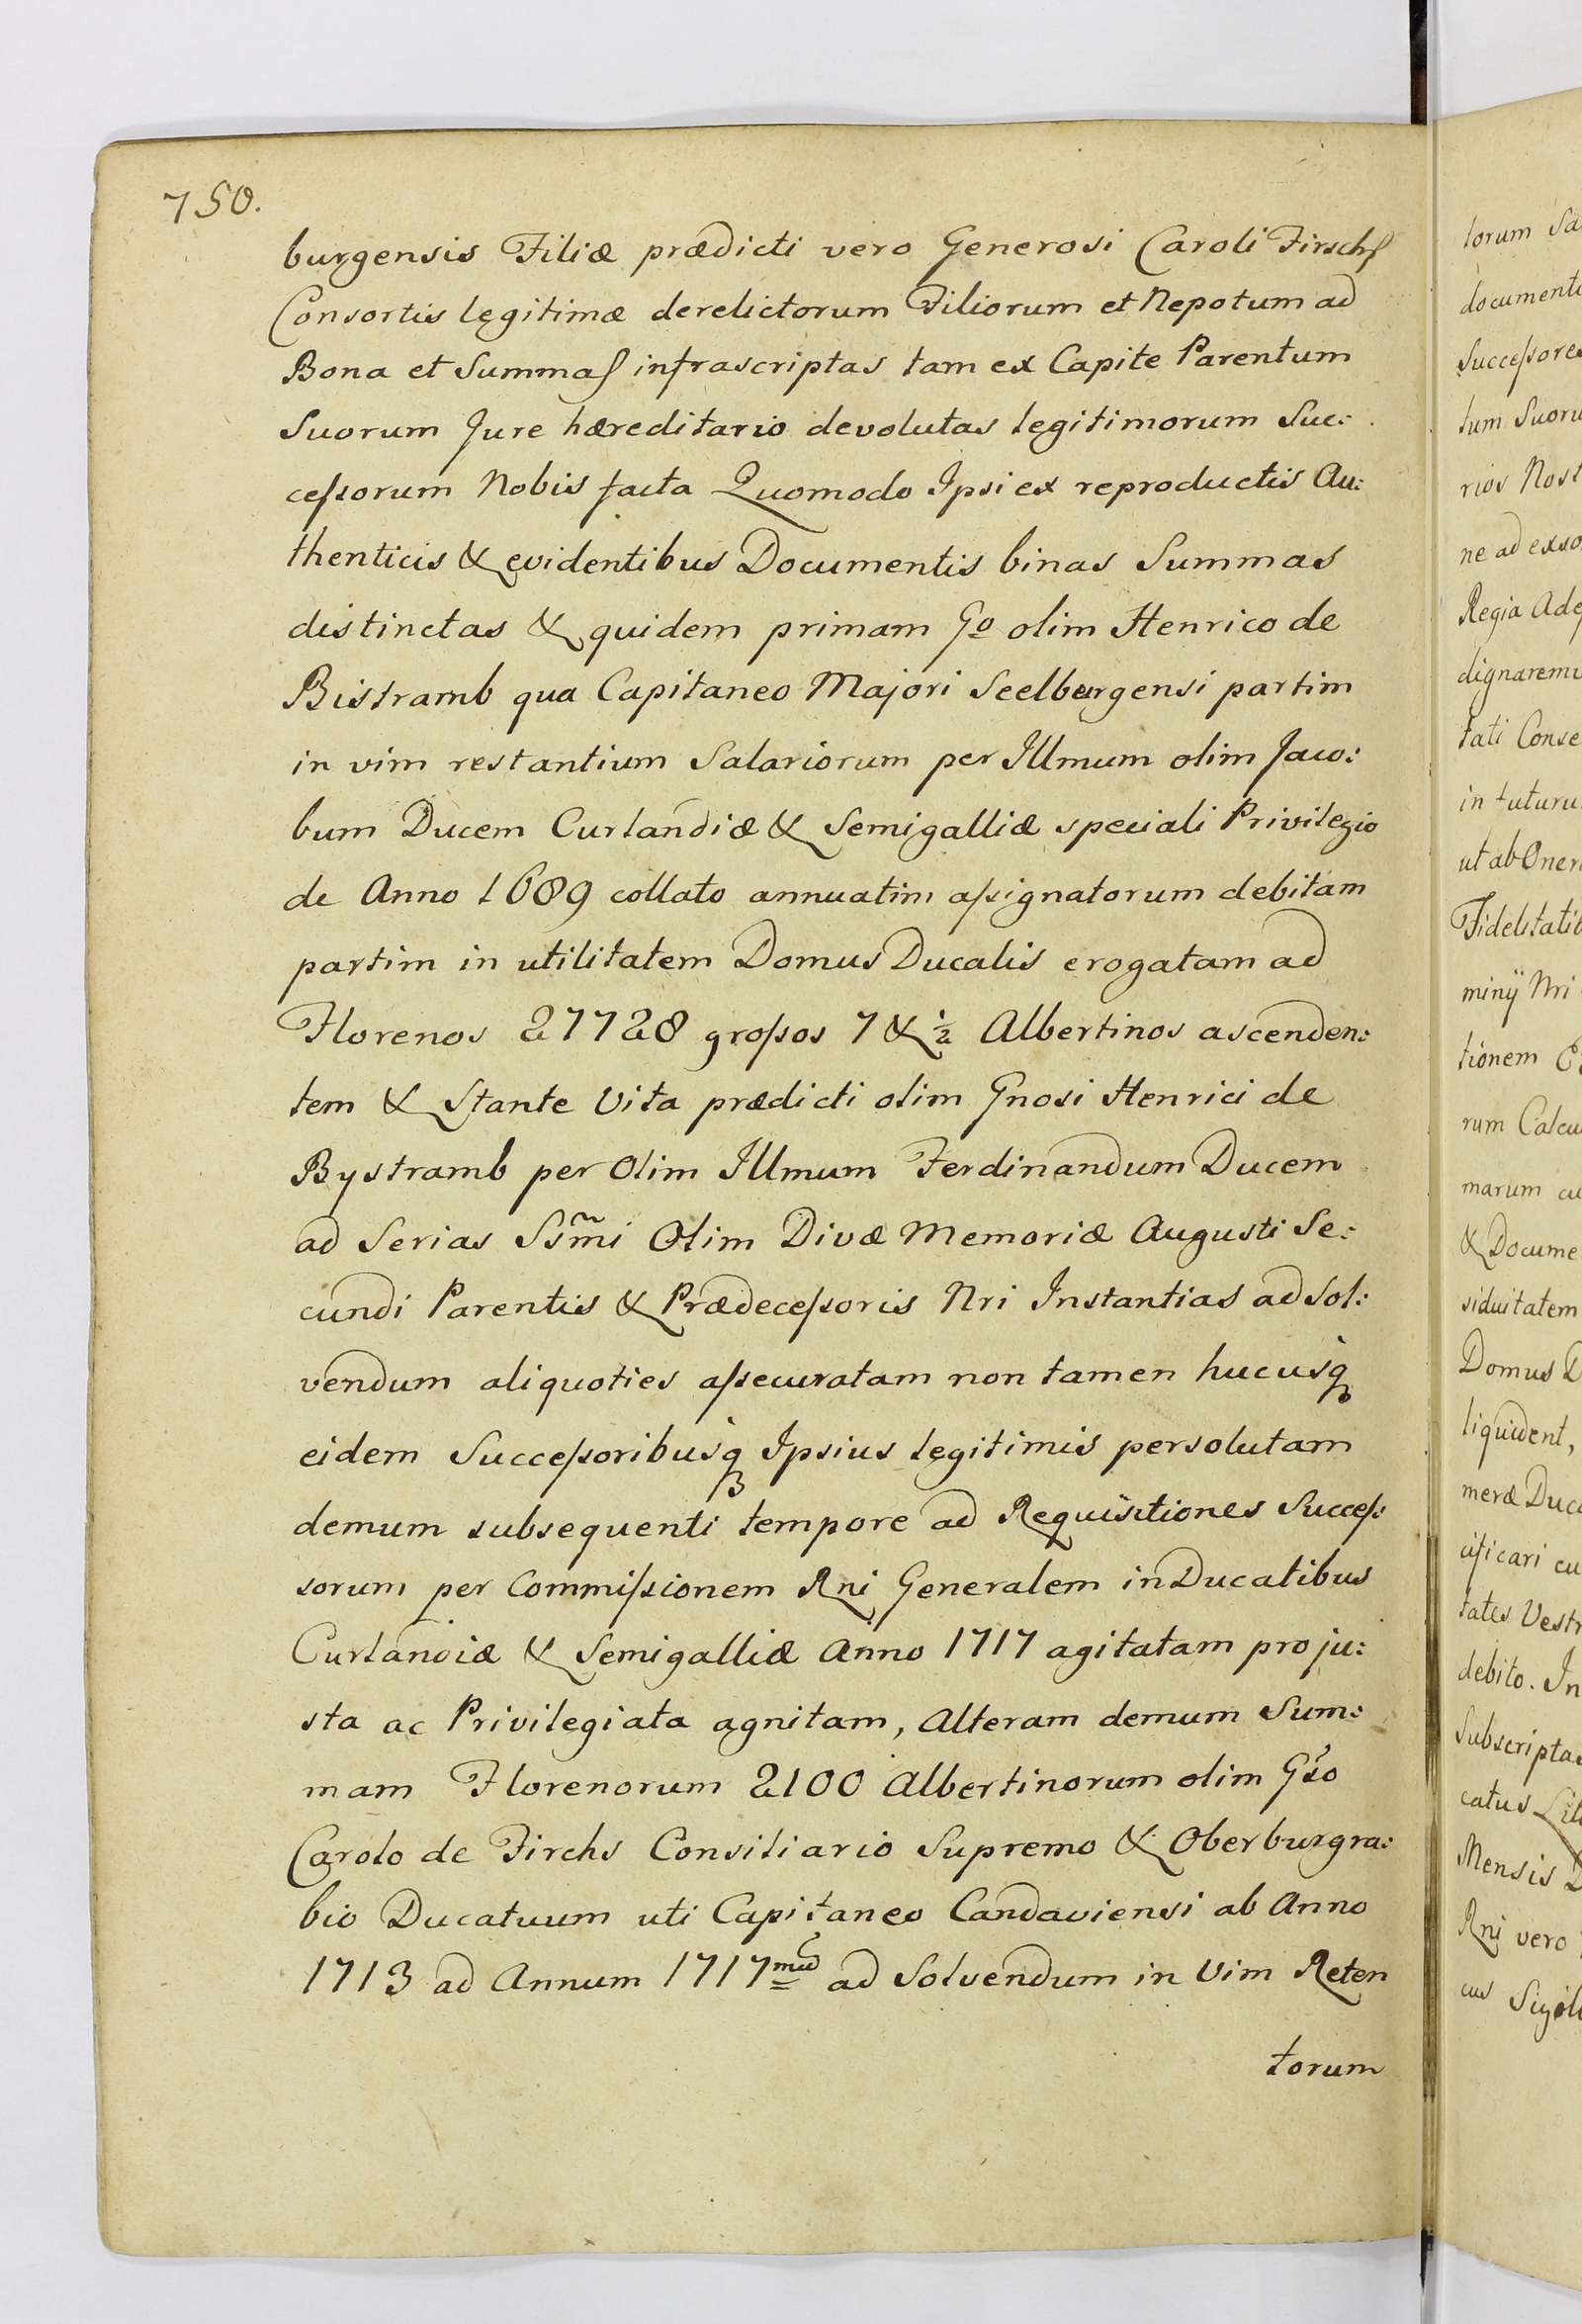 750.
burgensis Filiæ prædicti vero Generosi Caroli Firschs
Consortis legitimæ derelictorum Filiorum et Nepotum ad
Bona et Summas infrascriptas tam ex Capite Parentum
Suorum Jure hæreditario devolutas legitimorum Suc:
cessorum Nobis facta Quomodo Ipsi ex reproductis Au:
thenticis & evidentibus Documentis binas Summas
distinctas & quidem primam Go olim Henrico de
Bistramb qua Capitaneo Majori Seelburgensi partim
in vim restantium Salariorum per Illmum olim Jaco:
bum Ducem Curlandiæ & Semigalliæ speciali Privilegio
de Anno 1689 collato annuatim assignatorum debitam
partim in utilitatem Domus Ducalis erogatam ad
Florenos 27728 grossos 7 & ½ Albertinos ascenden:
tem & Stante Vita prædicti olim Gnosi Henrici de
Bystramb per Olim Illmum Ferdinandum Ducem
ad Serias Ssm̃i Olim Divæ Memoriæ Augusti Se:
cundi Parentis & Prædecessoris Nri Instantias ad Sol:
vendum aliquoties assecuratam non tamen hucusq
eidem Successoribusq Ipsius legitimis persolutam
demum subsequenti tempore ad Requisitiones Succes:
sorum per Commissionem Rni Generalem in Ducatibus
Curlandiæ & Semigalliæ Anno 1717 agitatam pro ju:
sta ac Privilegiata agnitam, Alteram demum Sum:
mam Florenorum 2100 Albertinorum olim Gso
Carolo de Firchs Consiliario Supremo & Oberburgra:
bio Ducatuum uti Capitaneo Candaviensi ab Anno
1713 ad Annum 1717 ad Solvendum in Vim Reten
torum
torum Sa
documenti
Successores
tum Suoru
rios Nost
ne ad exso
Regia Ade
dignaremu
tati Conse
in futuru
ut ab Oner
Fidelitatib
minÿ Nri
tionem
rum Calcu
marum cu
& Docume
siduitatem
Domus D
liquident,
meræ Duca
cificari cu
tates Vestr
debito. In
Subscriptas
catus Lit
Mensis D
Rni vero
cus Sigill